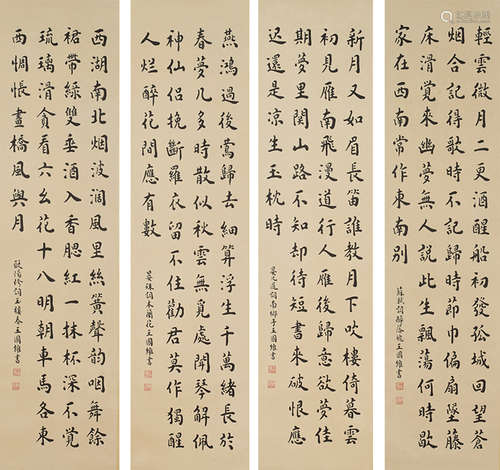 輕雲微月二更酒醒船初發孤城回望蒼
烟合記得歌時不記歸時節巾偏扇墜藤
床滑覺來幽夢無人說此生飄蕩何時歇
家在西南常作東南別
蘇軾詞醉落魄王國維書
新月又如眉長笛誰教月下吹樓倚暮雲
初見雁南飛漫道行人雁後歸意欲夢佳
期夢里關山路不知却待短書來破恨應
遲還是涼生玉枕時
晏几道詞南鄉子王國維書
燕鴻過後鶯歸去細算浮生千萬緒長於
春夢几多時散似秋雲無覓處聞琴解佩
神仙侣挽斷羅衣留不住勸君莫作獨醒
人烂醉花間應有數
晏殊詞木蘭花王國維書
西湖南北烟波濶風里絲簧聲韵咽舞餘
裙帶綠雙垂酒入香腮紅一抹杯深不覺
琉璃滑貪看六幺花十八明朝車馬各東
西惆悵畫橋風與月
歐陽修詞玉樓春王國維書